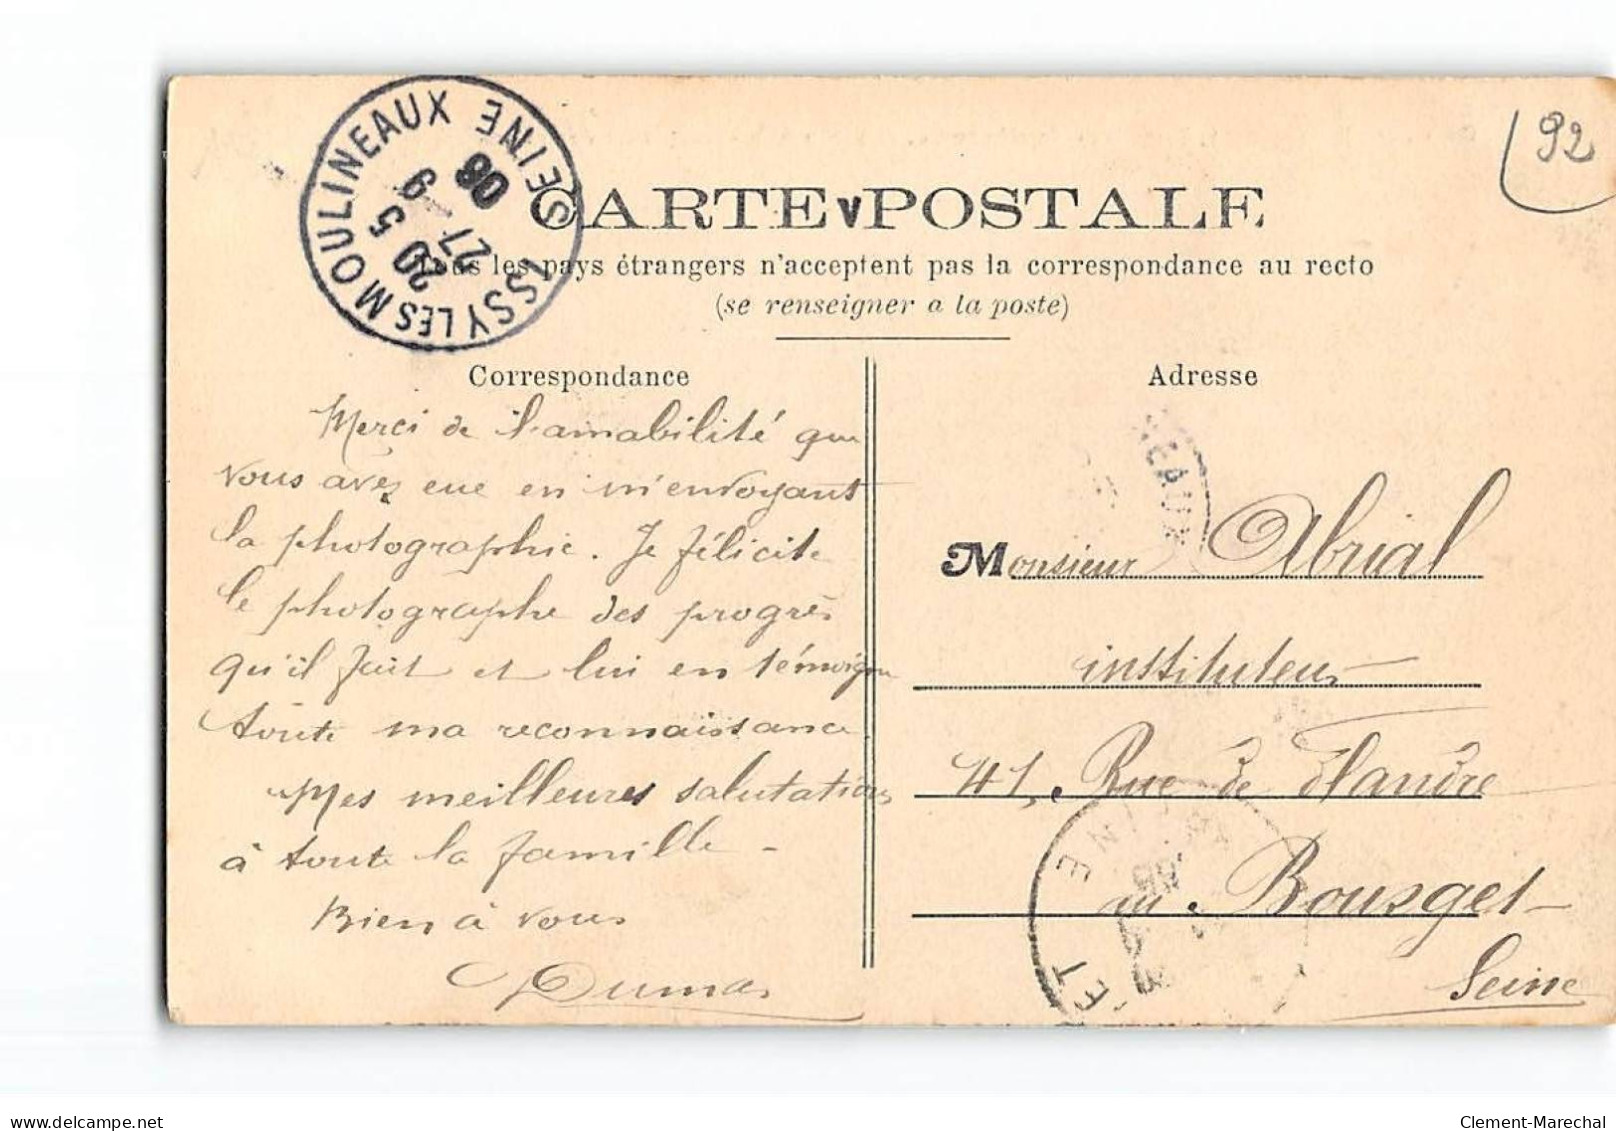 92
ISSY LES MOULINEAUX SEINE
20 5
27 - 9
06
CARTE POSTALE
Tous les pays étrangers n'acceptent pas la correspondance au recto
(se renseigner a la poste)
Correspondance
Merci de l'amabilité que
vous avez eue en m'envoyant
la photographie. Je félicite
le photographe des progrès
qu'il fait et lui en témoigne
toute ma reconnaissance
Mes meilleures salutations
à toute la famille -
Bien à vous
Dumas
Adresse
NEAUX
Monsieur Abrial
instituteur
41, Rue de Flandre
au Bourget
Seine
delcampe.net
Clement-Marechal